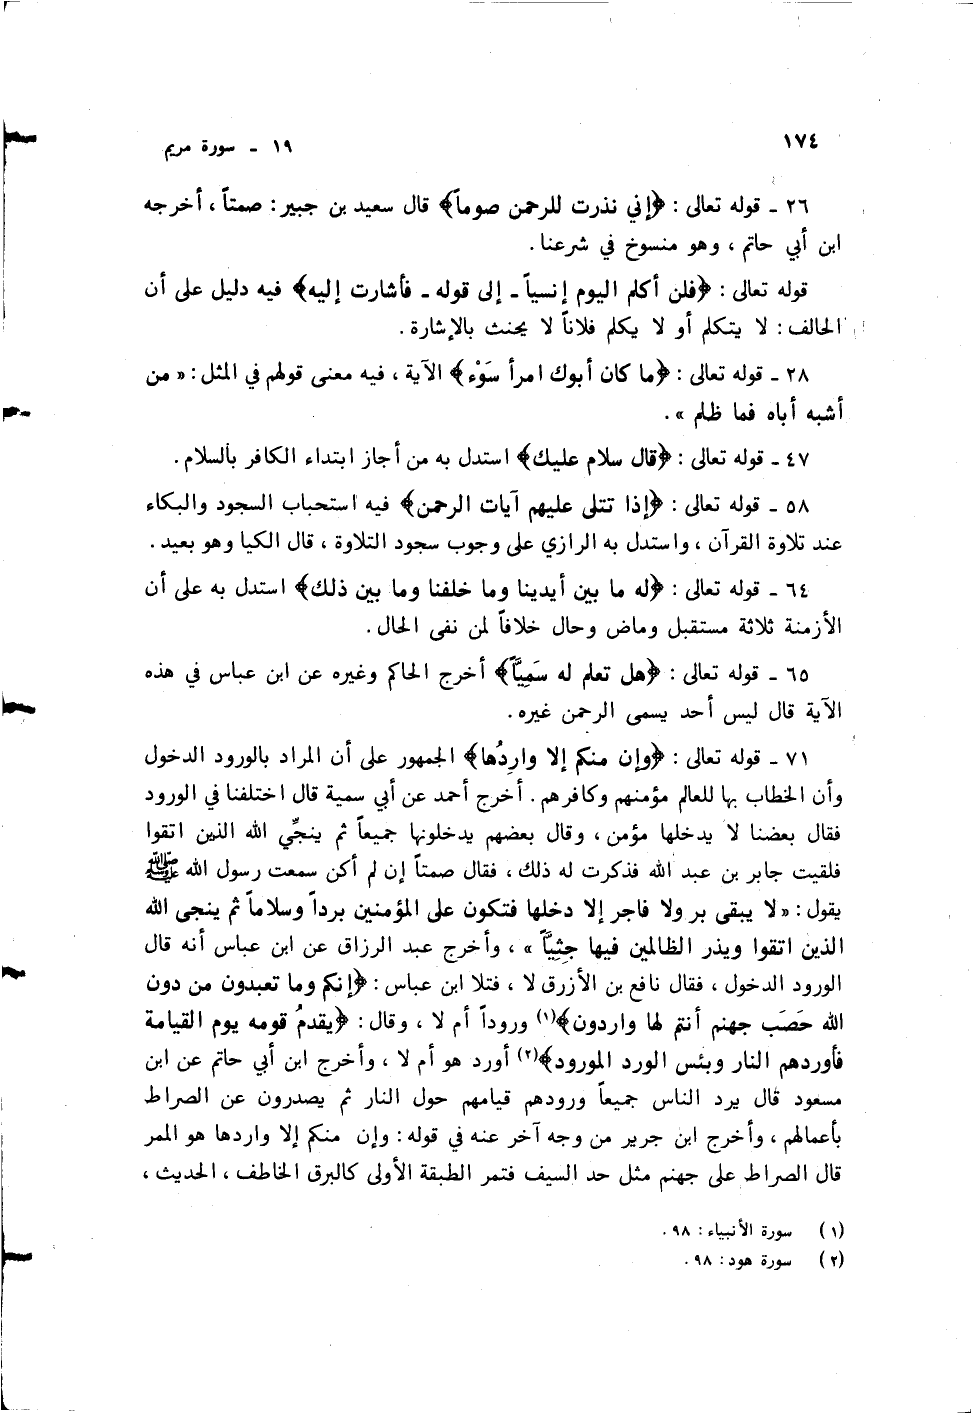 ١٧٤
١٩ - سورة مريم
٢٦ - قوله تعالى : ﴿إني نذرت للرحمن صوماً﴾ قال سعيد بن جبير : صمتاً ، أخرجه
ابن أبي حاتم ، وهو منسوخ في شرعنا .
قوله تعالى : ﴿فلن أكلم اليوم إنسياً - إلى قوله - فأشارت إليه﴾ فيه دليل على أن
الحالف : لا يتكلم أو لا يكلم فلاناً لا يحنث بالإشارة .
٢٨ - قوله تعالى : ﴿ما كان أبوك امرأ سَوْء﴾ الآية ، فيه معنى قولهم في المثل : « من
أشبه أباه فما ظلم » .
٤٧ - قوله تعالى : ﴿قال سلام عليك﴾ استدل به من أجاز ابتداء الكافر بألسلام .
٥٨ - قوله تعالى : ﴿إذا تتلى عليهم آيات الرحمن﴾ فيه استحباب السجود والبكاء
عند تلاوة القرآن ، واستدل به الرازي على وجوب سجود التلاوة ، قال الكيا وهو بعيد .
٦٤ - قوله تعالى : ﴿له ما بين أيدينا وما خلفنا وما بين ذلك﴾ استدل به على أن
الأزمنة ثلاثة مستقبل وماض وحال خلافاً لمن نفى الحال .
٦٥ - قوله تعالى : ﴿هل تعلم له سَمِيَّاً﴾ أخرج الحاكم وغيره عن ابن عباس في هذه
الآية قال ليس أحد يسمى الرحمن غيره .
٧١ - قوله تعالى : ﴿وإن منكم إلا وارِدُها﴾ الجمهور على أن المراد بالورود الدخول
وأن الخطاب بها للعالم مؤمنهم وكافرهم . أخرج أحمد عن أبي سمية قال اختلفنا في الورود
فقال بعضنا لا يدخلها مؤمن ، وقال بعضهم يدخلونها جميعاً ثم ينجِّي الله الذين اتقوا
فلقيت جابر بن عبد الله فذكرت له ذلك ، فقال صمتاً إن لم أكن سمعت رسول الله ﷺ
يقول : « لا يبقى بر ولا فاجر إلا دخلها فتكون على المؤمنين برداً وسلاماً ثم ينجى الله
الذين اتقوا ويذر الظالمين فيها جثِيَّاً » ، وأخرج عبد الرزاق عن ابن عباس أنه قال
الورود الدخول ، فقال نافع بن الأزرق لا ، فتلا ابن عباس : ﴿إنكم وما تعبدون من دون
الله حَصَب جهنم أنتم لها واردون﴾(١) وروداً أم لا ، وقال : ﴿يقدمُ قومه يوم القيامة
فأوردهم النار وبئس الورد المورود﴾(٢) أورد هو أم لا ، وأخرج ابن أبي حاتم عن ابن
مسعود قال يرد الناس جميعاً ورودهم قيامهم حول النار ثم يصدرون عن الصراط
بأعمالهم ، وأخرج ابن جرير من وجه آخر عنه في قوله : وإن منكم إلا واردها هو الممر
قال الصراط على جهنم مثل حد السيف فتمر الطبقة الأولى كالبرق الخاطف ، الحديث ،
(١) سورة الأنبياء : ٩٨ .
(٢) سورة هود : ٩٨ .